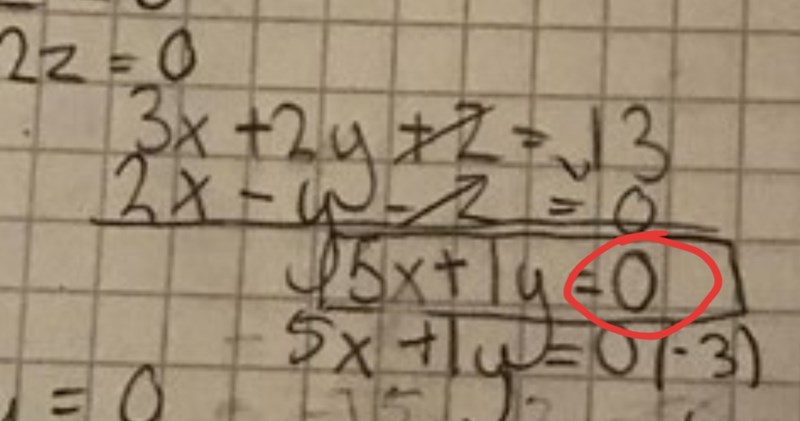 2z = 0
3x + 2y + z = 13
2x - y - z = 0
5x + 1y = 0
5x + 1y = 0 (-3)
= 0